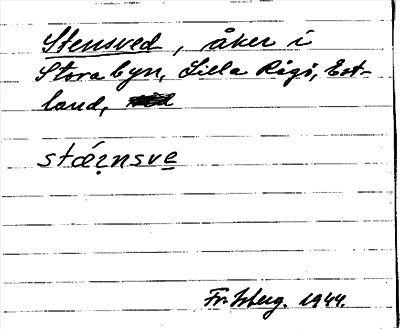 Stensved, åker i
Stora byn, Lilla Rågö, Est-
land,
stǽṇnsve
1944.